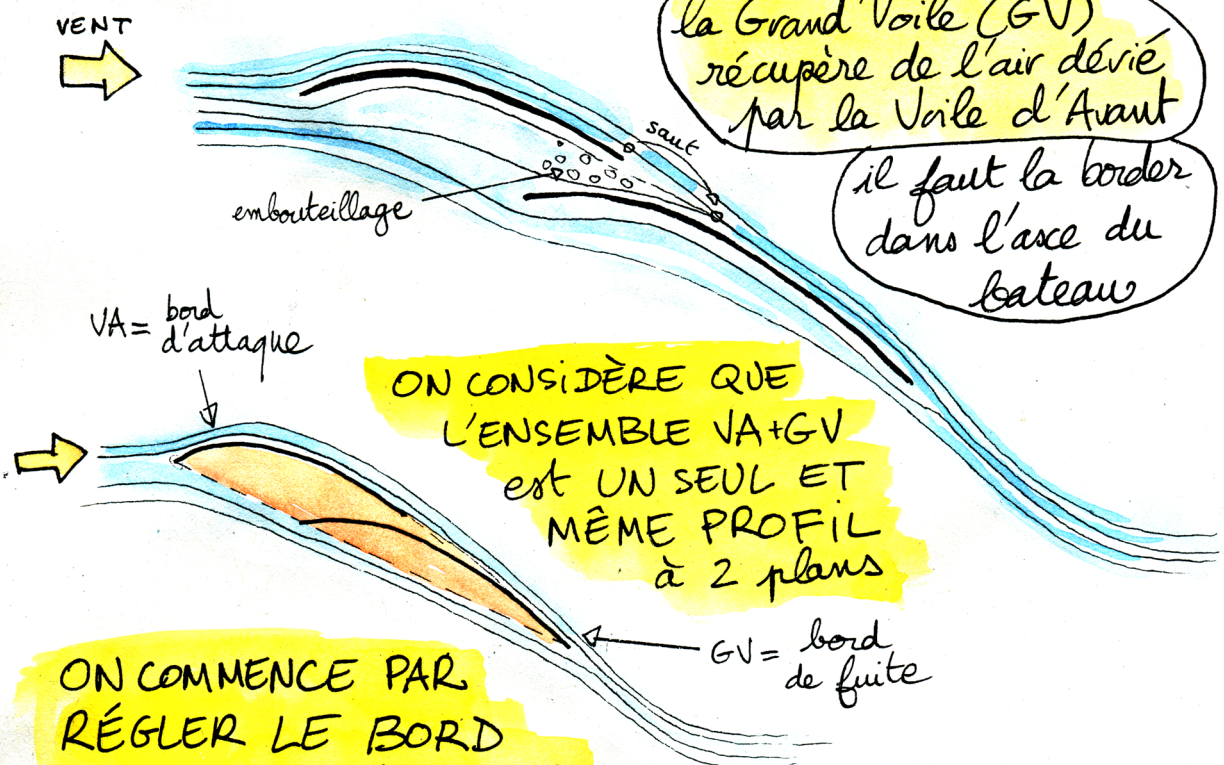 VENT
la Grand'Voile (GV)
récupère de l'air dévié
par la Voile d'Avant
saut
il faut la border
dans l'axe du
bateau
embouteillage
VA = bord
d'attaque
ON CONSIDÈRE QUE
L'ENSEMBLE VA+GV
est UN SEUL ET
MÊME PROFIL
à 2 plans
GV = bord
de fuite
ON COMMENCE PAR
RÉGLER LE BORD